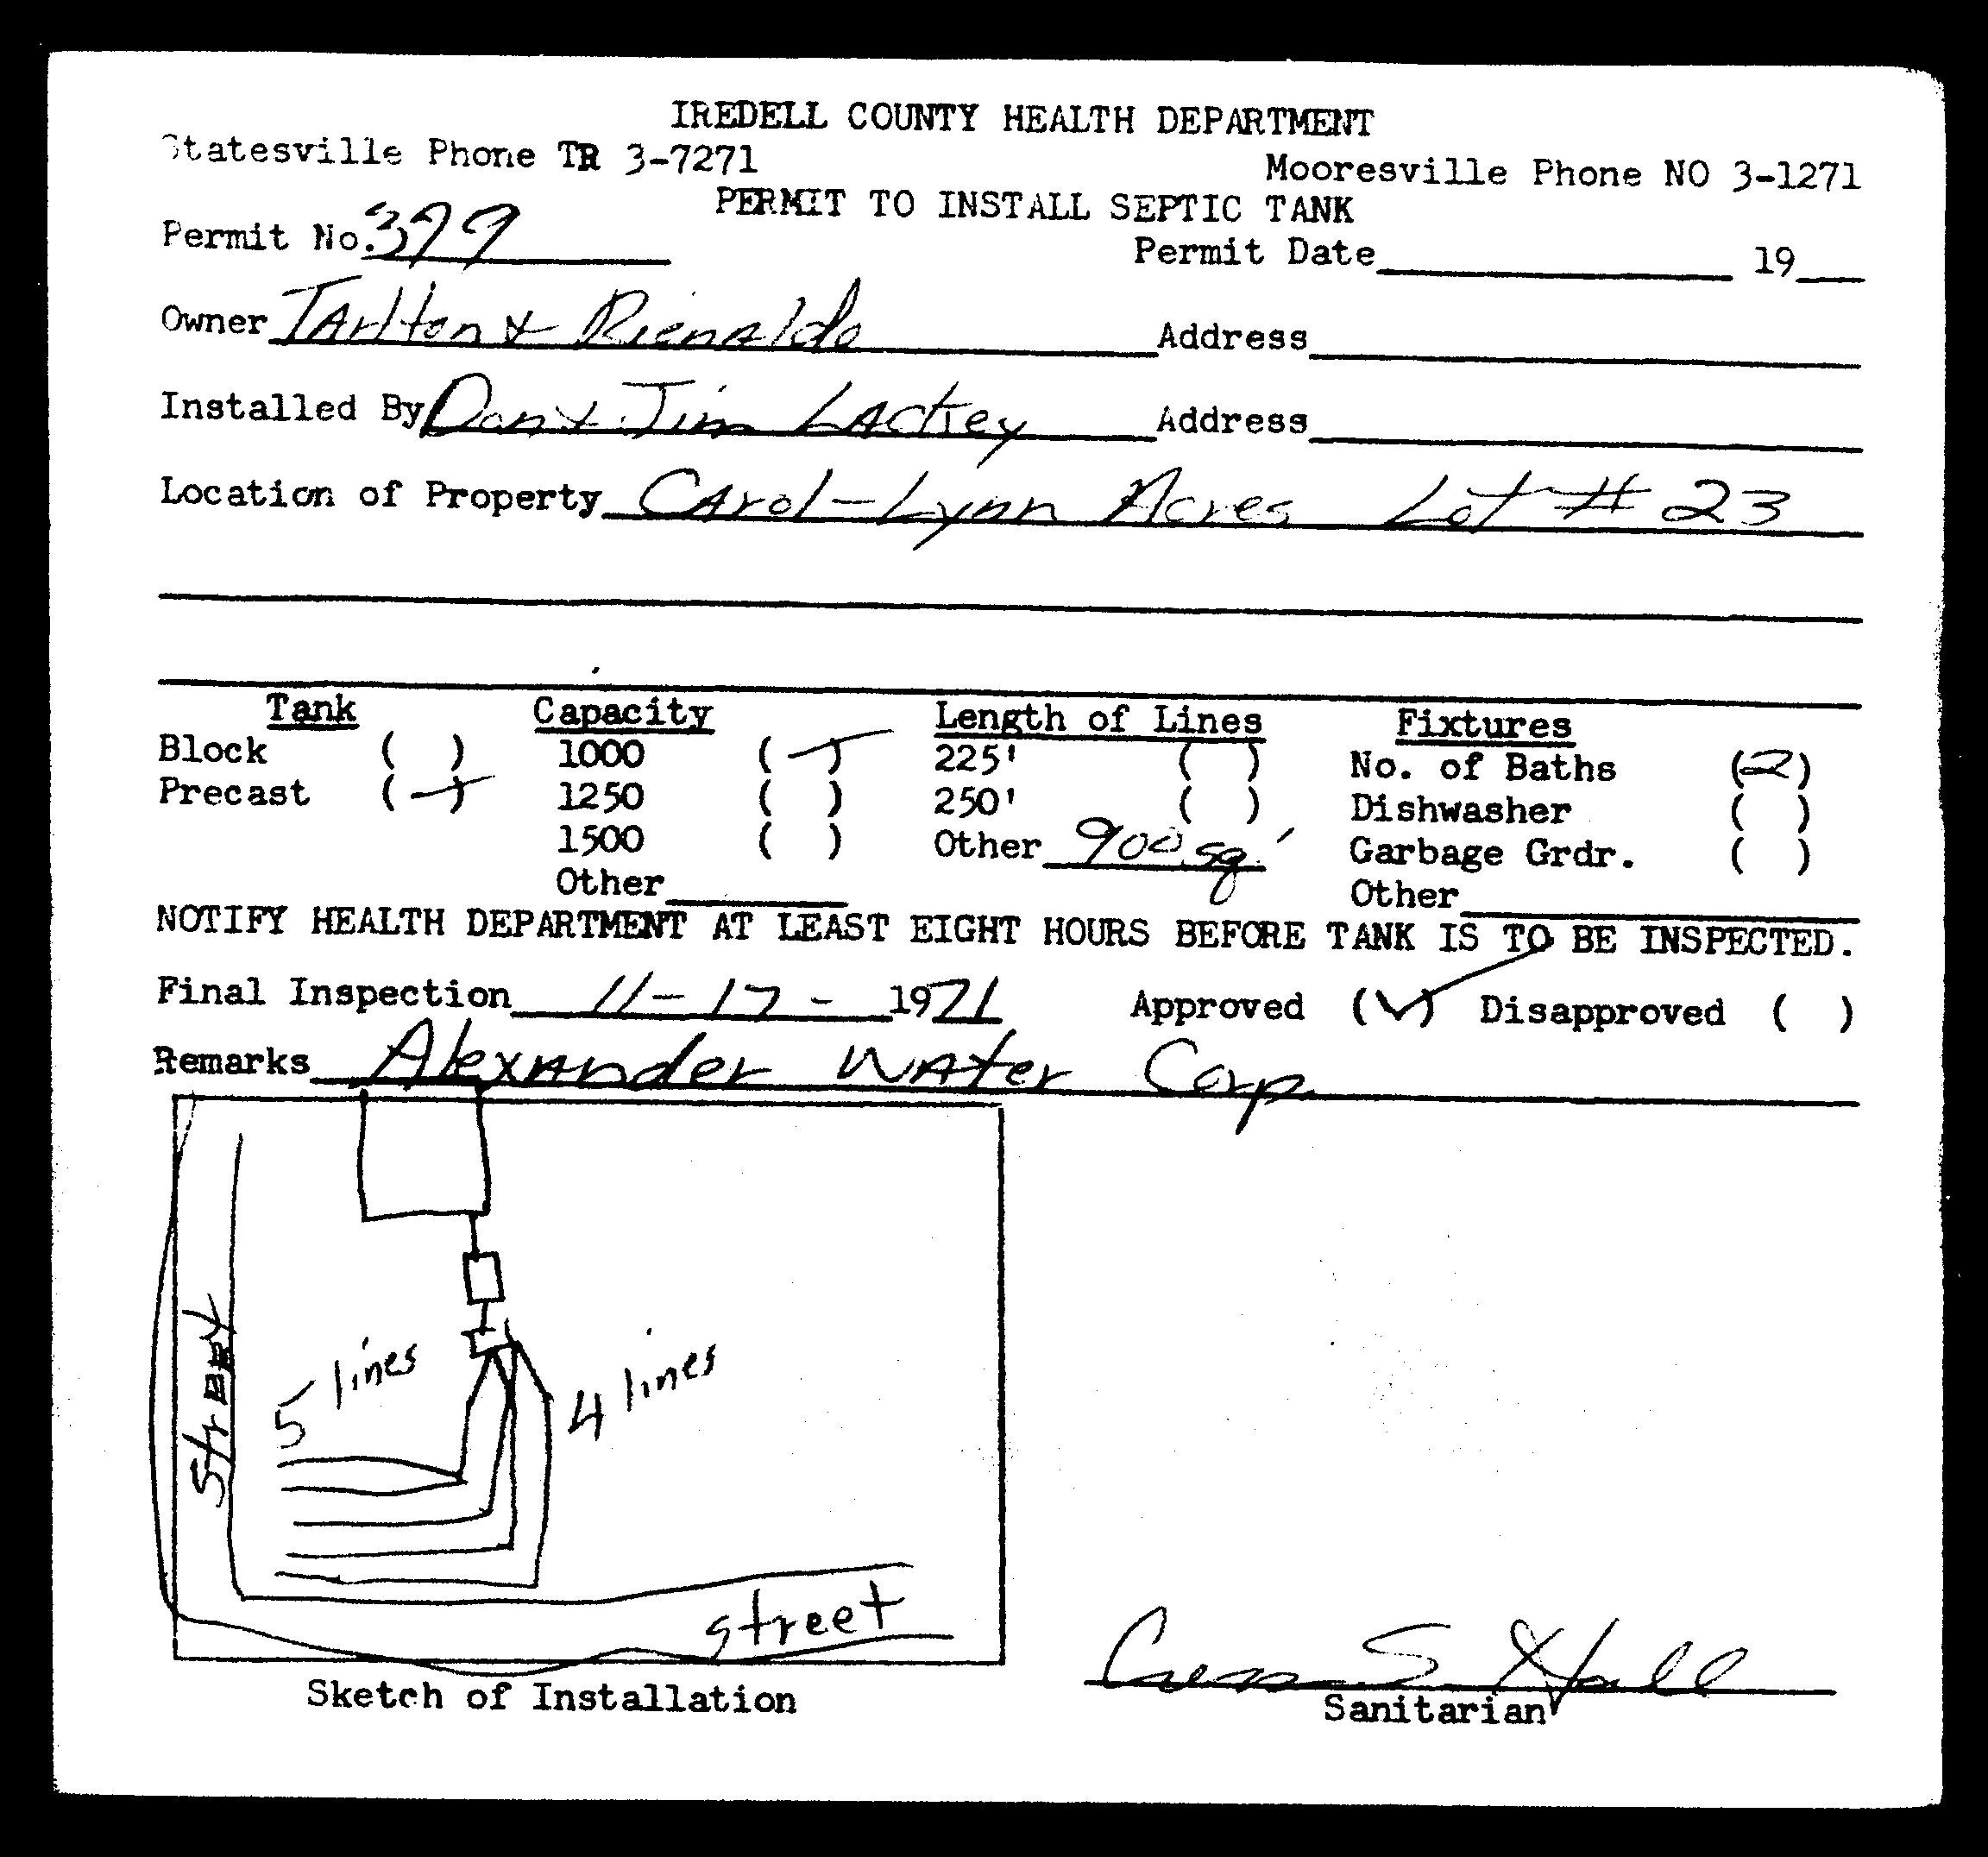 IREDELL COUNTY HEALTH DEPARTMENT
Statesville Phone TR 3-7271 Mooresville Phone NO 3-1271
PERMIT TO INSTALL SEPTIC TANK
Permit No. 399 Permit Date 19
Owner Tarlton & Rienaldo Address
Installed By Don & Jim Lackey Address
Location of Property Carol-Lynn Acres Lot # 23
Tank Capacity Length of Lines Fixtures
Block ( ) 1000 (✓) 225' ( ) No. of Baths (2)
Precast (✓) 1250 ( ) 250' ( ) Dishwasher ( )
1500 ( ) Other 900 sq.' Garbage Grdr. ( )
Other Other
NOTIFY HEALTH DEPARTMENT AT LEAST EIGHT HOURS BEFORE TANK IS TO BE INSPECTED.
Final Inspection 11-17- 1971 Approved (✓) Disapproved ( )
Remarks Alexander Water Corp
Street
5 lines
4 lines
street
Sketch of Installation
S Hall
Sanitarian